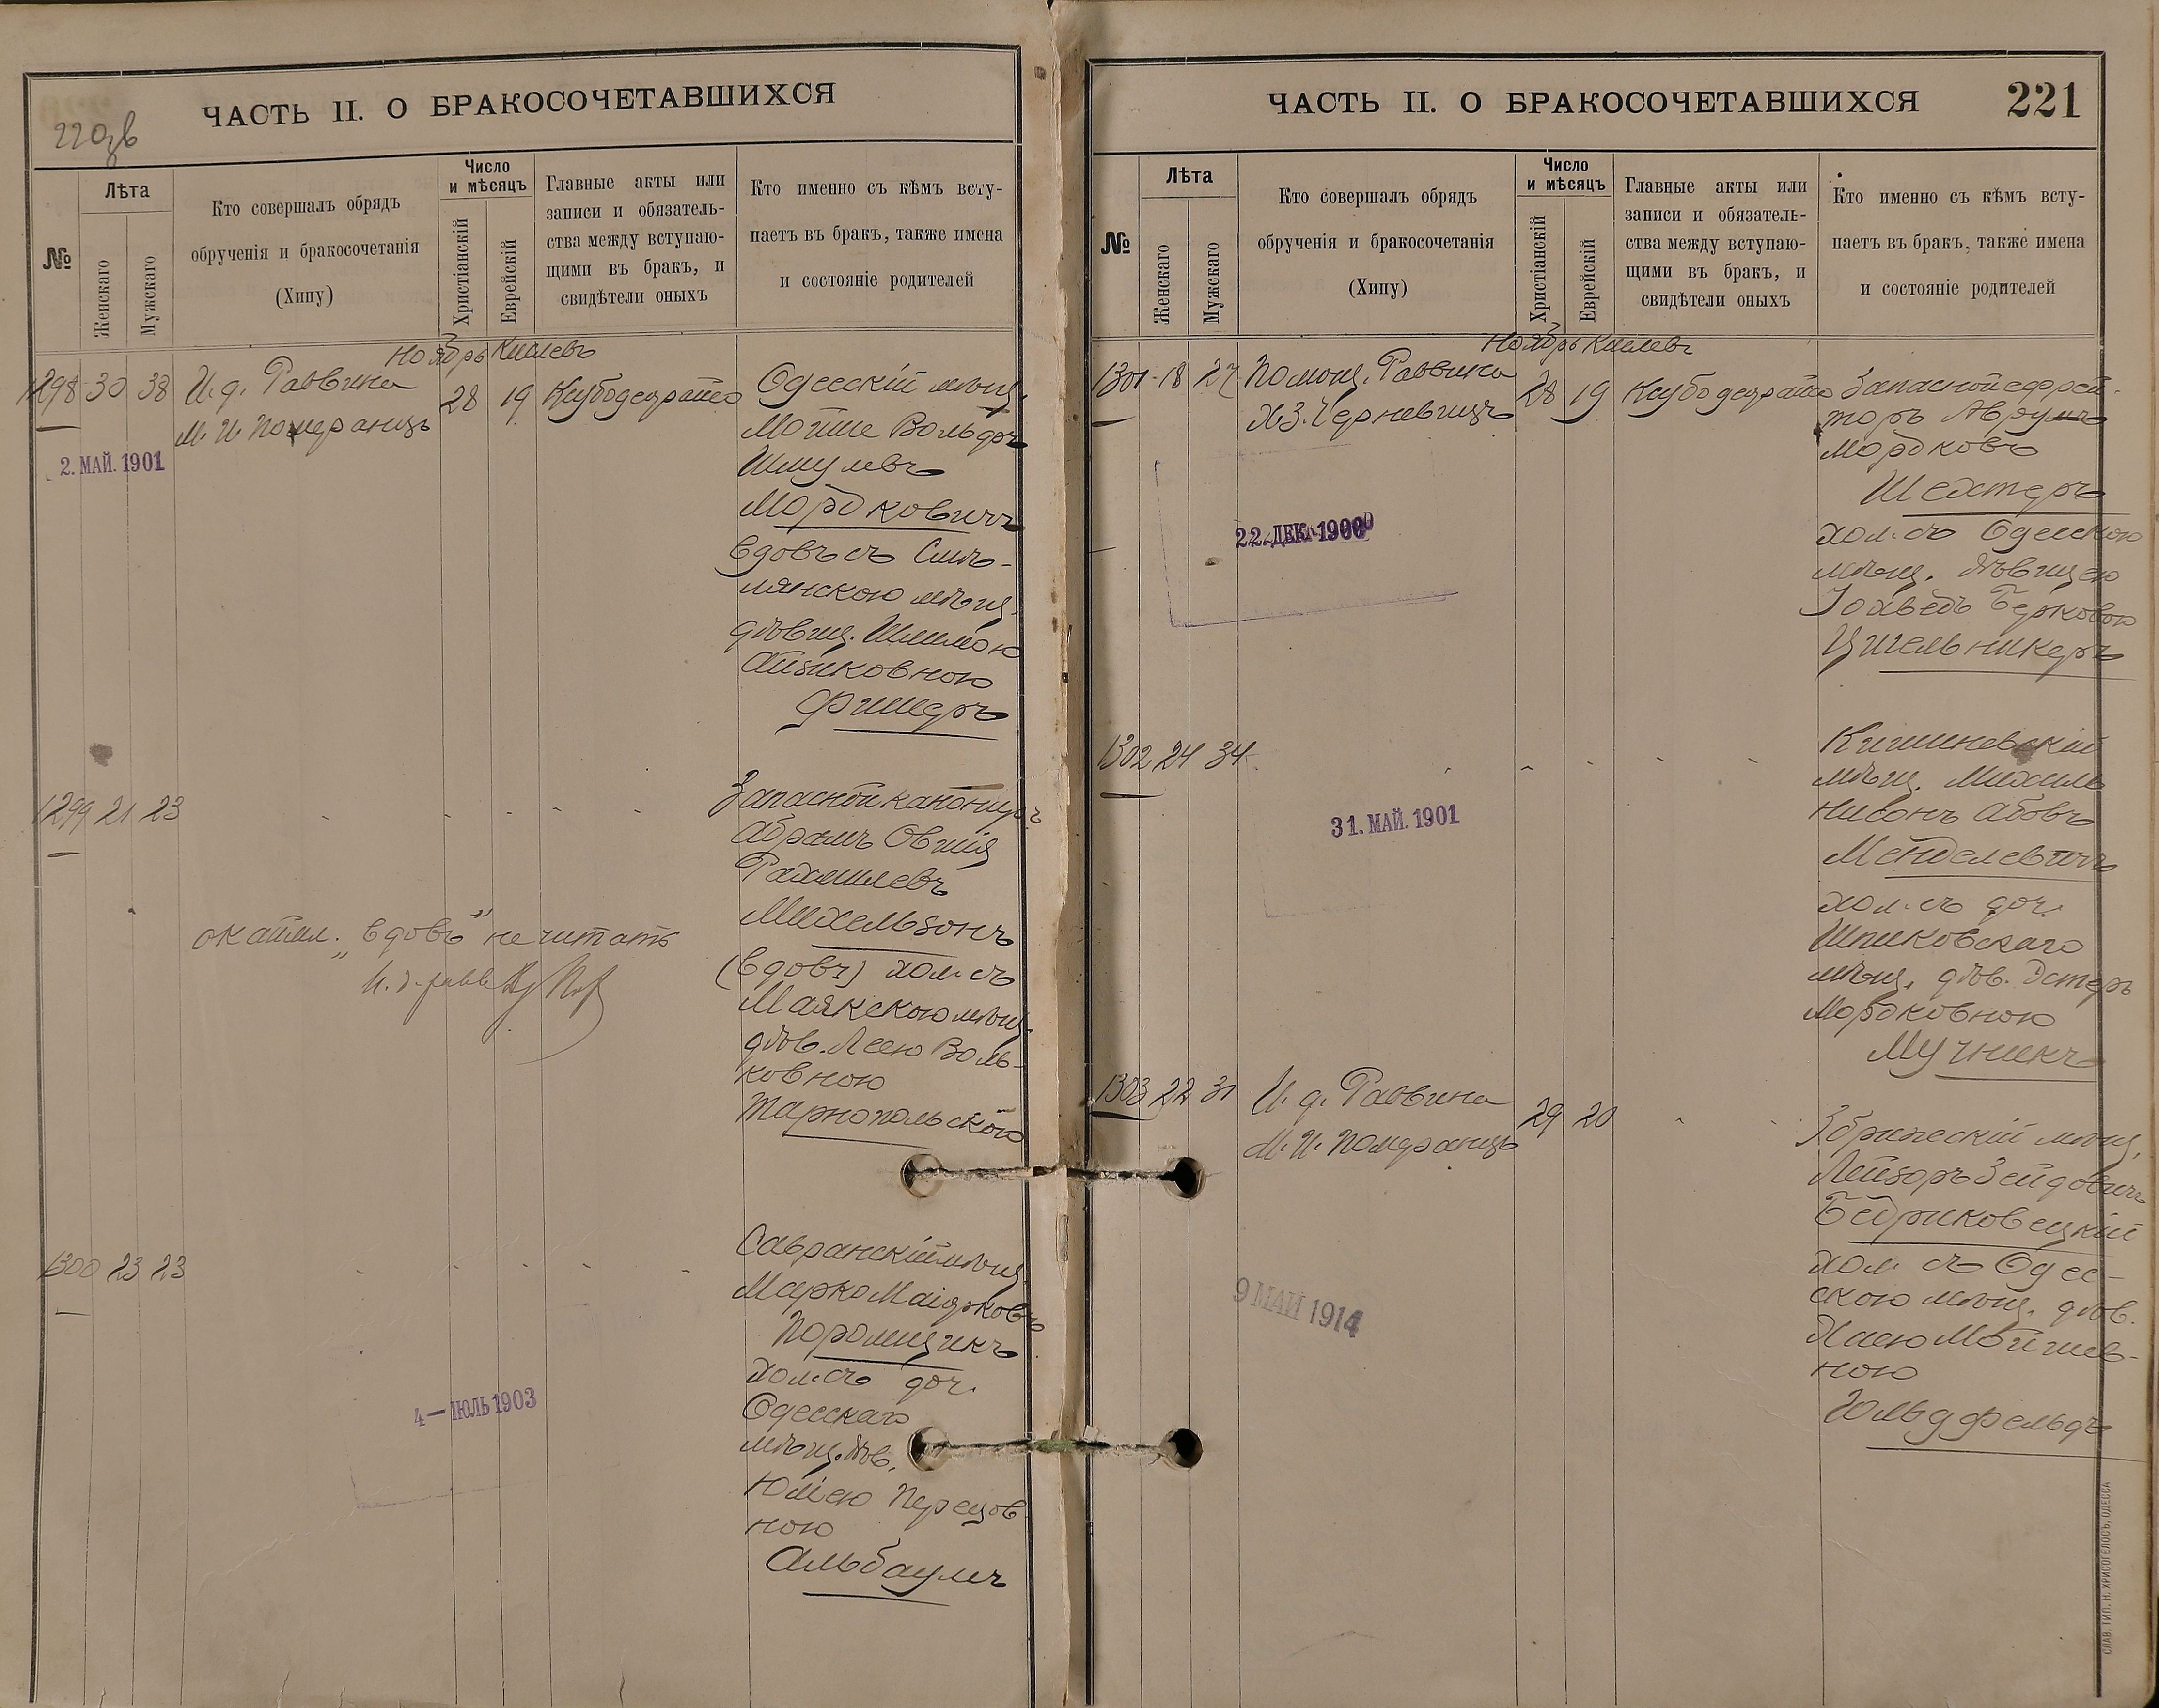 ЧАСТЬ II. О БРАКОСОЧЕТАВШИХСЯ
220зв
№
Лѣта
Женскаго
Мужскаго
Кто совершалъ обрядъ
обрученія и бракосочетанія
(Хипу)
Число
и мѣсяцъ
Христіанскій
Еврейскій
Главные акты или
записи и обязатель-
ства между вступаю-
щими въ бракъ, и
свидѣтели оныхъ
Кто именно съ кѣмъ всту-
паетъ въ бракъ, также имена
и состояніе родителей
Ноябрь Кислевъ
1298 30 38 И. д. Раввина
М. И. Померанцъ
28 19
2. МАЙ. 1901
Одесскій мѣщ.
Мойше Вольфъ
Шмулевъ
Мордковичъ
вдовъ съ Смѣ-
лянскою мѣщ.
дѣвиц.
Айзиковною
Фишеръ
1299 21 23
Запасной канониръ
Абрамъ Овшія
Рахмилевъ
Михельзонъ
(вдовъ) хол. съ
Маякскою мѣщ.
дѣв. Леею Воль-
ковною
Тарнопольскою
„вдовъ" не читать
И. д. равв.
1300 23 23
Савранскій мѣщ.
Марко Маіорковъ
Поромщикъ
хол. съ доч.
Одесскаго
мѣщ. дѣв.
Юліею Перецов-
ною
Альбаумъ
4 — ІЮЛЬ 1903
ЧАСТЬ II. О БРАКОСОЧЕТАВШИХСЯ
221
№
Лѣта
Женскаго
Мужскаго
Кто совершалъ обрядъ
обрученія и бракосочетанія
(Хипу)
Число
и мѣсяцъ
Христіанскій
Еврейскій
Главные акты или
записи и обязатель-
ства между вступаю-
щими въ бракъ, и
свидѣтели оныхъ
Кто именно съ кѣмъ всту-
паетъ въ бракъ, также имена
и состояніе родителей
Ноябрь Кислевъ
1301 18 27 Помощ. Раввина
Х. З. Черневицъ
28 19
22. ДЕК. 1900
Запасной ефрей-
торъ Аврумъ
Мордковъ
Шехтеръ
хол. съ Одесскою
мѣщ. дѣвицею
Іохведъ Берковою
Цигельникеръ
1302 24 34
31. МАЙ. 1901
Кишиневскій
мѣщ. Михель
Нисонъ Абовъ
Менделевичъ
хол. съ доч.
Шпиковскаго
мѣщ. дѣв. Эстеръ
Мордковною
Мучникъ
1303 22 31 И. д. Раввина
М. И. Померанцъ
29 20
9 МАЙ 1914
Збрижскій мѣщ.
Лейзоръ Зейдовичъ
Бедриковецкій
хол. съ Одес-
скою мѣщ. дѣв.
Хаею Мойшев-
ною
Гольдфельдъ
СЛАВ. ТИП. Н. ХРИСОГЕЛОСЪ, ОДЕССА